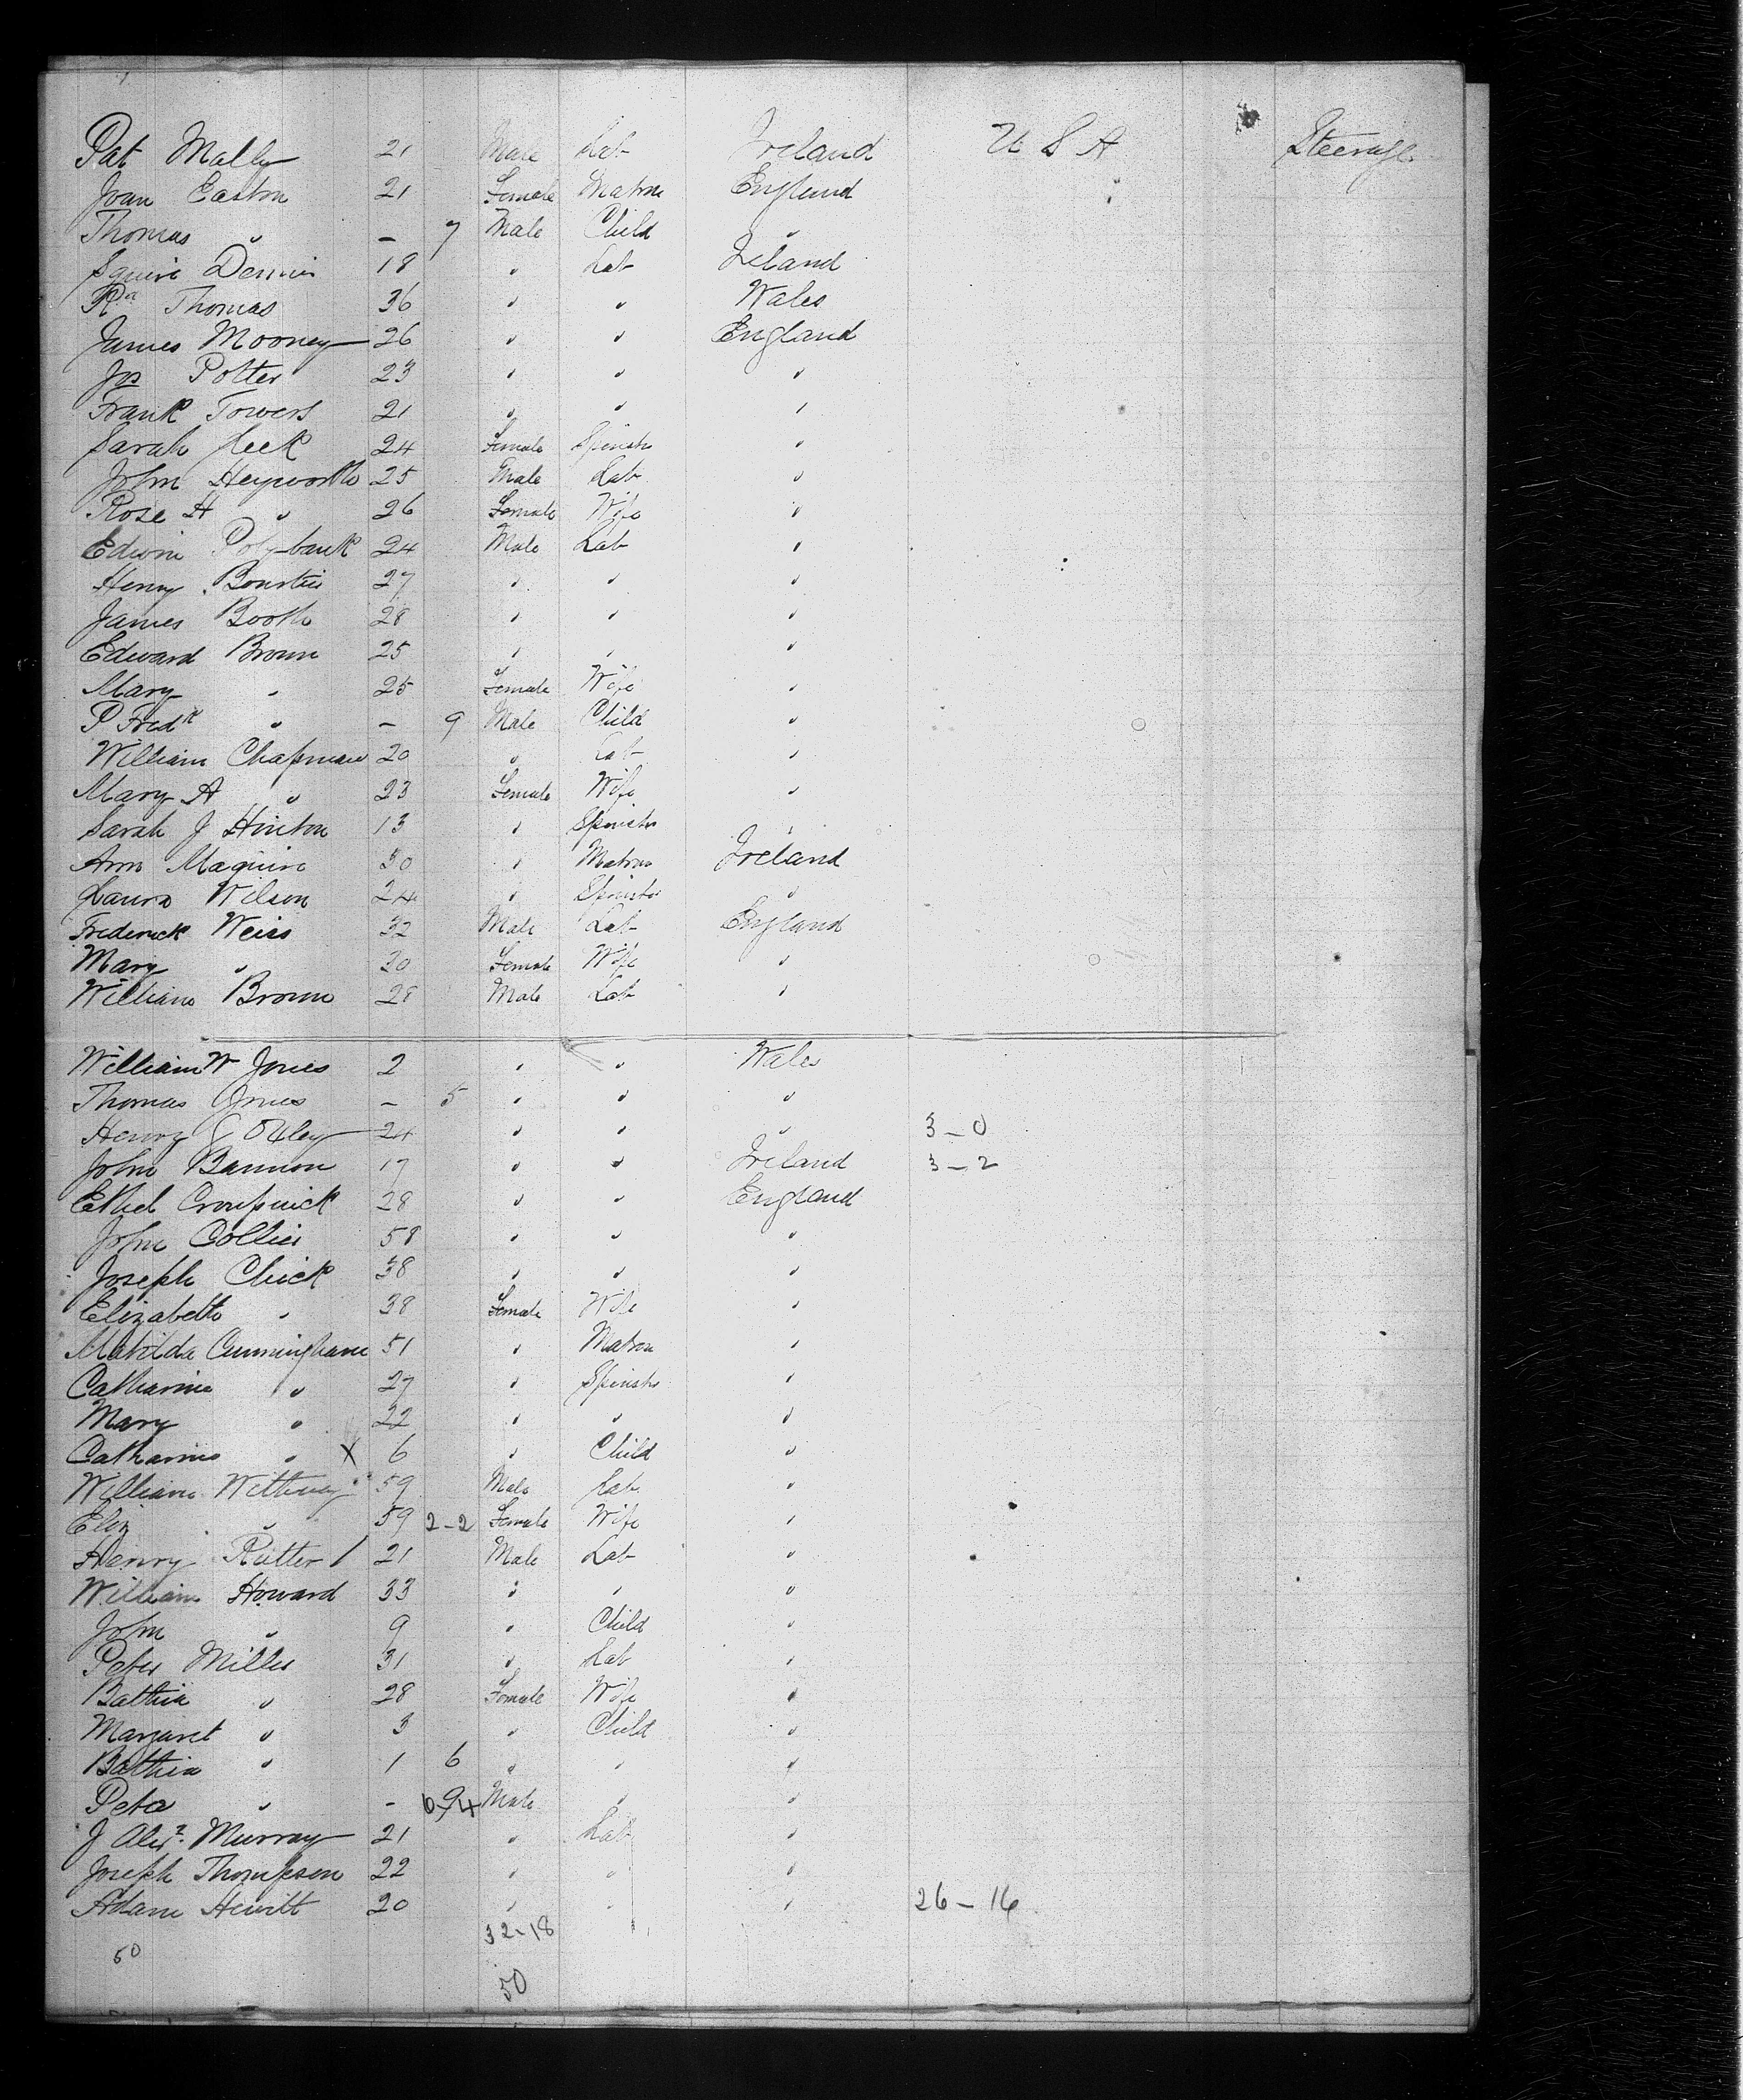 Pat Mally 21 Male Lab Ireland U S A Steerage
Joan Easton 21 Female Matron England
Thomas " – 7 Male Child "
Squire Dennis 18 " Lab Ireland
Rd Thomas 36 " " Wales
James Mooney 26 " " England
Jos Potter 23 " " "
Frank Towers 21 " " "
Sarah 24 Female Spinster "
John Heyworth 25 Male Lab "
Rose H " 26 Female Wife "
Edwin 24 Male Lab "
Henry 27 " " "
James Booth 28 " " "
Edward Brown 25 " " "
Mary " 25 Female Wife "
P Fredk " – 9 Male Child "
William Chapman 20 " Lab "
Mary A " 23 Female Wife "
Sarah J Hinton 13 " Spinster "
Ann Maguire 50 " Matron Ireland
Laura Wilson 24 " Spinster "
Frederick Weiss 32 Male Lab England
Mary " 30 Female Wife "
William Brown 28 Male Lab "
William W Jones 2 " " Wales
Thomas Jones – 5 " " "
Henry 24 " " " 3–0
John Bannon 17 " " Ireland 3–2
Ethel 28 " " England
John Collier 58 " " "
Joseph Chick 38 " " "
Elizabeth " 38 Female Wife "
Matilda Cunningham 51 " Matron "
Catharine " 27 " Spinster "
Mary " 22 " " "
Catharine " X 6 " Child "
William 59 Male Lab "
Eliz " 59 2–2 Female Wife "
Henry Rutter / 21 Male Lab "
William Howard 33 " " "
John " 9 " Child "
Peter Miller 31 " Lab "
Bathia " 28 Female Wife "
Margaret " 3 " Child "
Bathia " 1 6 " " "
Peter " – 9 6–4 Male " "
J Alexr Murray 21 " Lab "
Joseph Thompson 22 " " "
Adam Hewitt 20 " " " 26–16
32–18
50
50